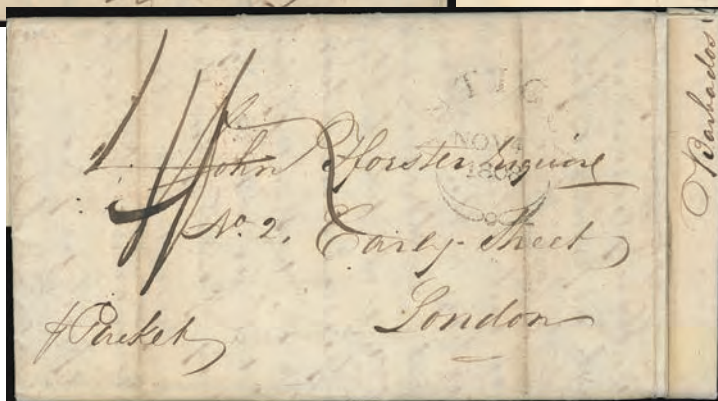 TIG
NOV 4
1808
John Forster Esquire
No. 2, Carey Street
London
Packet
Barbados